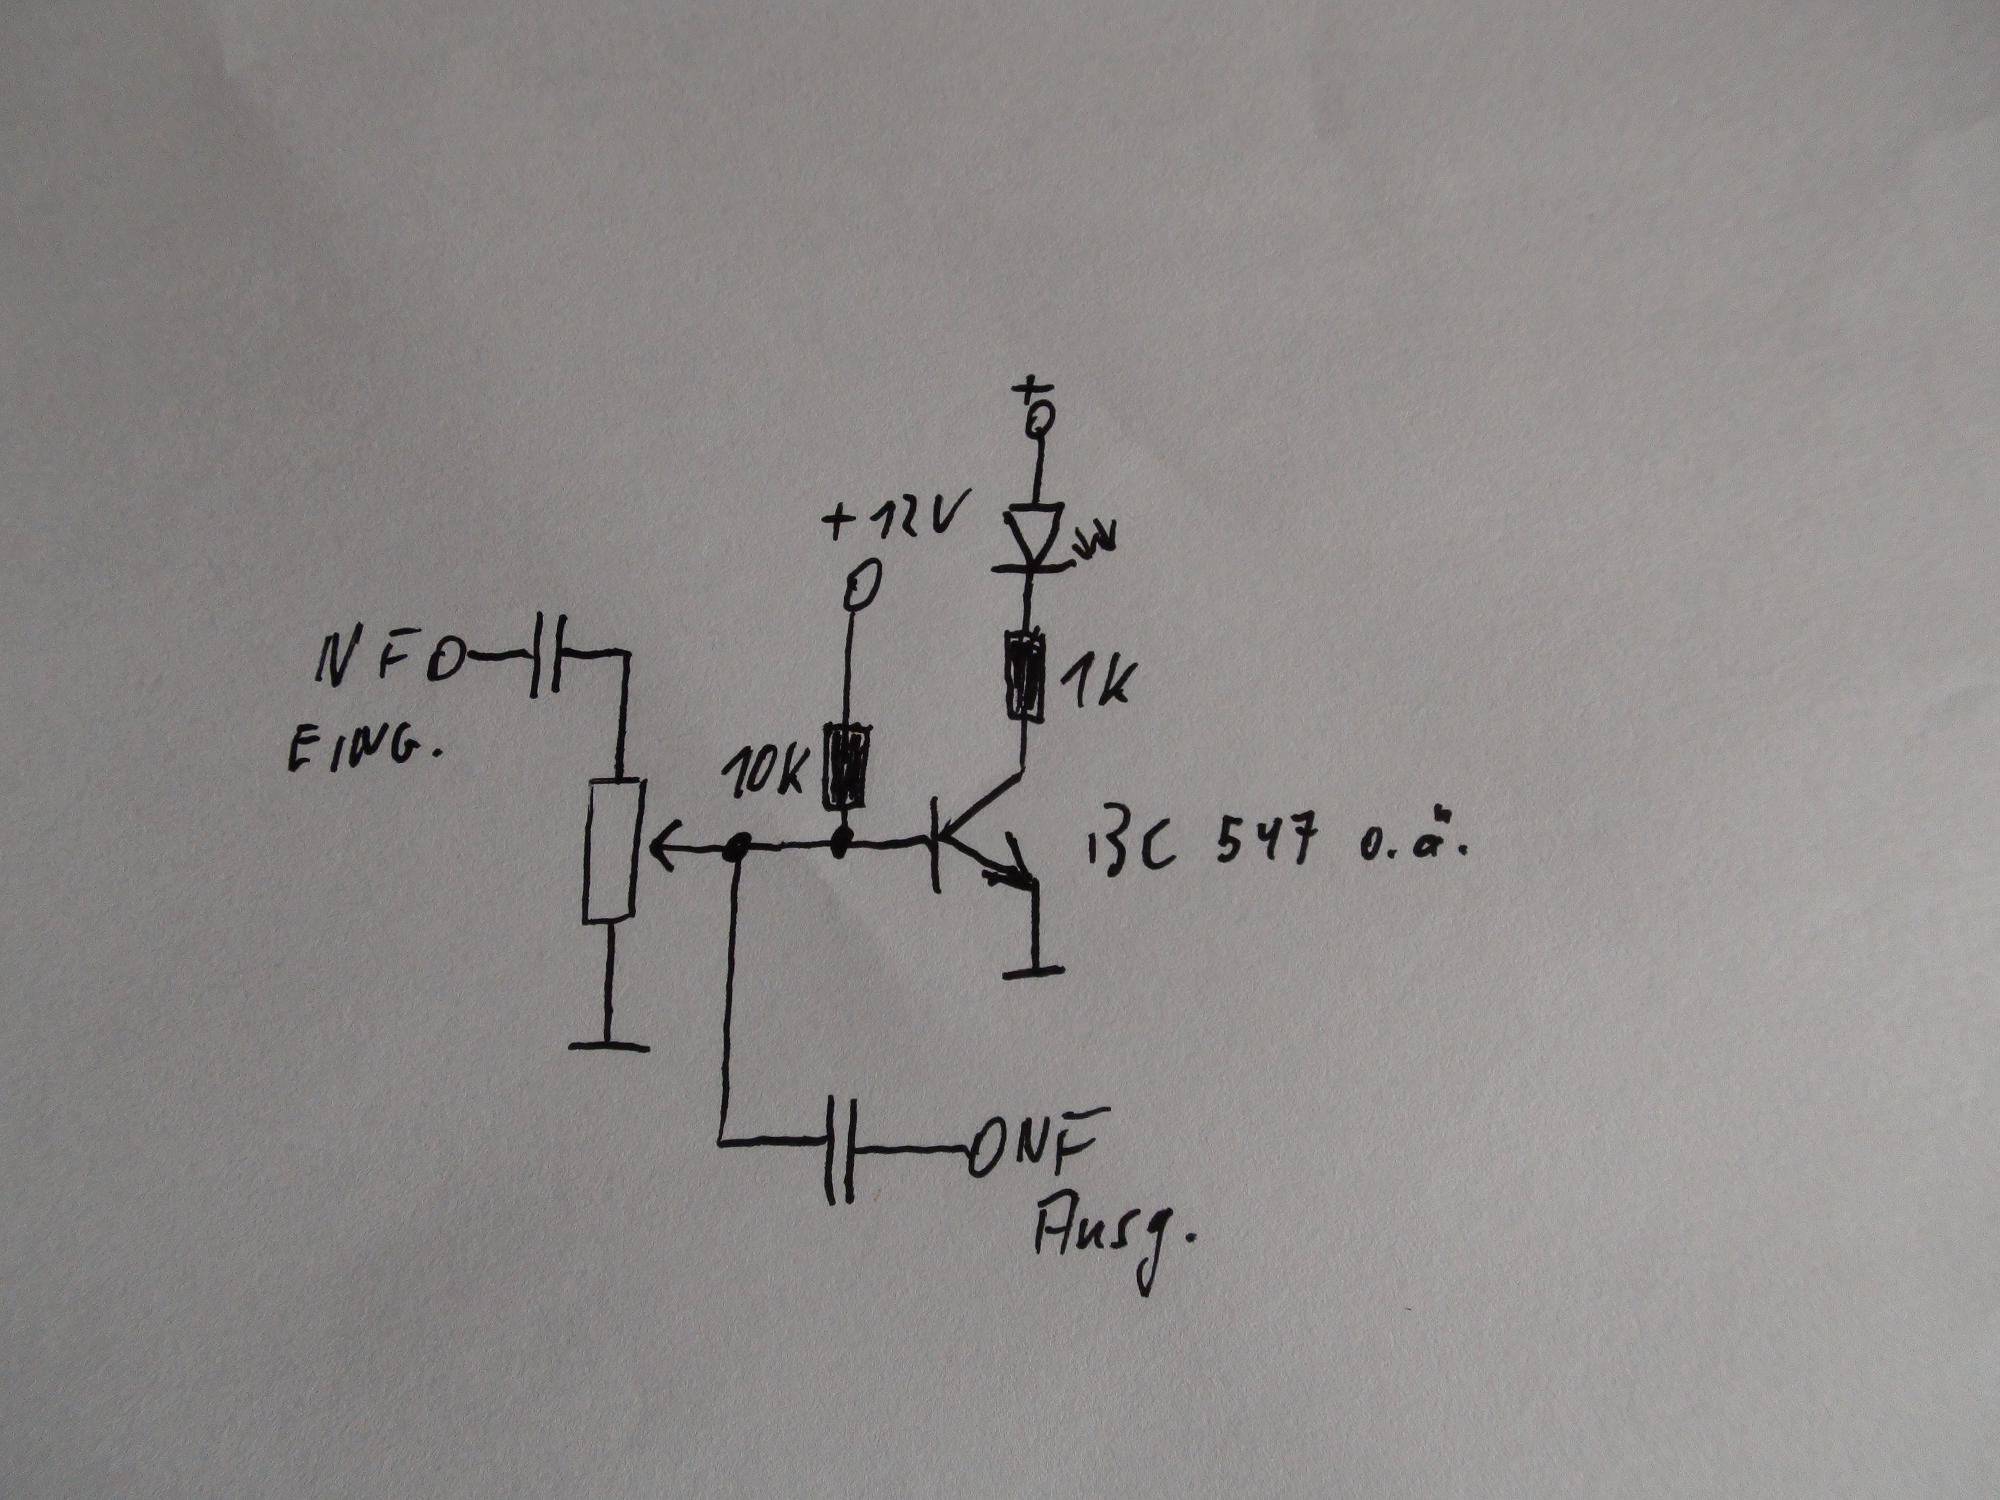 +
+12V
NF
EING.
1K
10K
BC 547 o.ä.
NF
Ausg.